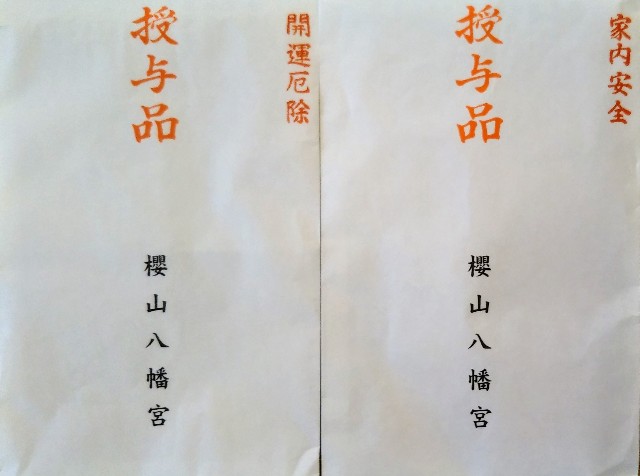 開運厄除
授与品
櫻山八幡宮
家内安全
授与品
櫻山八幡宮